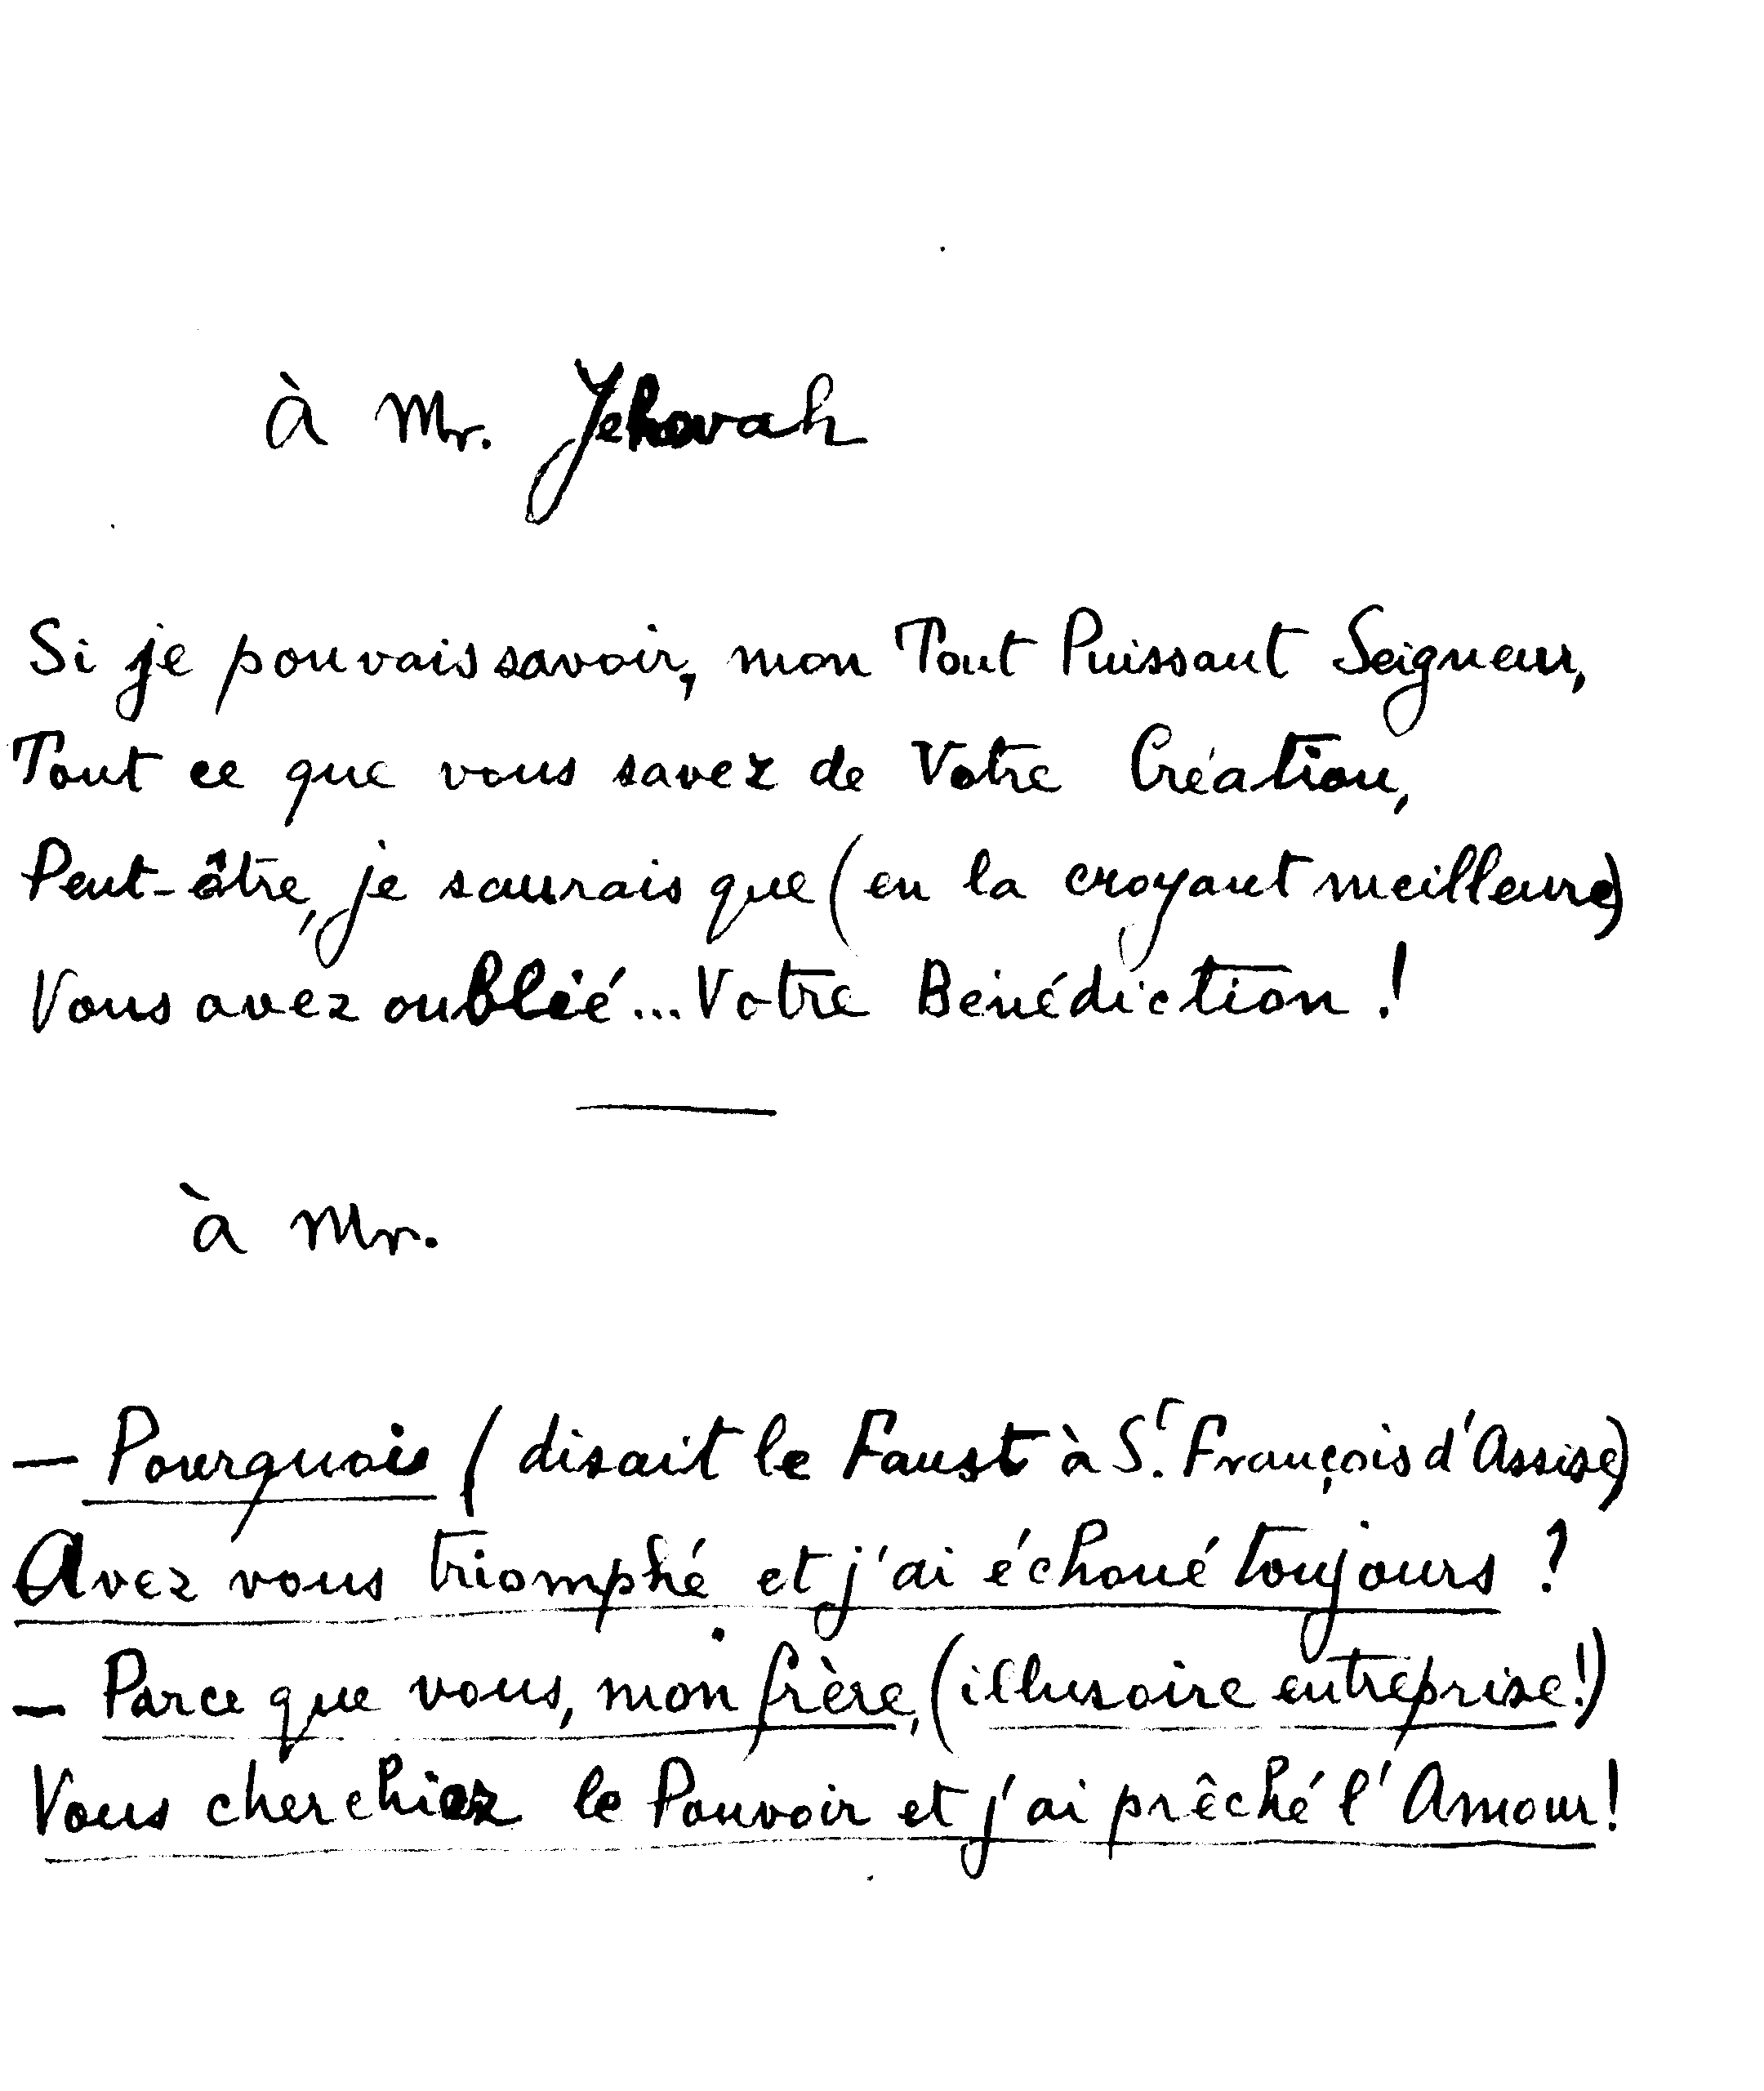 à Mr. Jehovah
Si je pouvais savoir, mon Tout Puissant Seigneur,
Tout ce que vous savez de Votre Création,
Peut-être, je saurais que (en la croyant meilleure)
Vous avez oublié... Votre Bénédiction !
à Mr.
— Pourquoi (disait le Faust à St. François d'Assise)
Avez vous triomphé et j'ai échoué toujours ?
— Parce que vous, mon frère, (illusoire entreprise!)
Vous cherchiez le Pouvoir et j'ai prêché l'Amour!